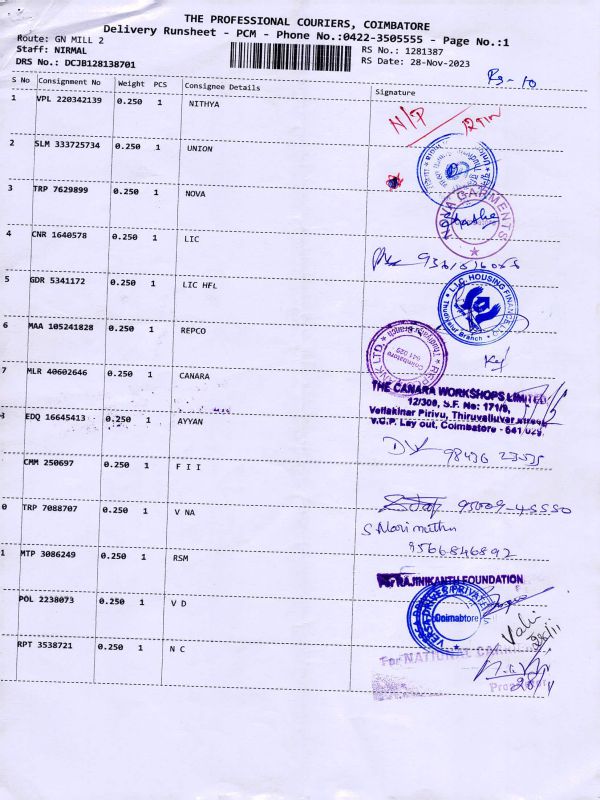 THE PROFESSIONAL COURIERS, COIMBATORE
Delivery Runsheet - PCM - Phone No.:0422-3505555 - Page No.:1
Route: GN MILL 2
Staff: NIRMAL RS No.: 1281387
DRS No.: DCJB128138701 RS Date: 28-Nov-2023
Rs-10
S No Consignment No Weight PCS Consignee Details Signature
1 VPL 220342139 0.250 1 NITHYA
N/P
2 SLM 333725734 0.250 1 UNION
3 TRP 7629899 0.250 1 NOVA
NOVA GARMENTS
4 CNR 1640578 0.250 1 LIC
5 GDR 5341172 0.250 1 LIC HFL
LIC HOUSING FINANCE
6 MAA 105241828 0.250 1 REPCO
Coimbatore
641 029
7 MLR 40602646 0.250 1 CANARA
THE CANARA WORKSHOPS LIMITED
12/308, S.F. No: 171/9,
Vellakinar Pirivu, Thiruvalluvar Street
V.C.P. Lay out, Coimbatore - 641 029.
EDQ 16645413 0.250 1 AYYAN
98436 23535
CMM 250697 0.250 1 F I I
0 TRP 7088707 0.250 1 V NA
95009-45550
S Marimuthu
9566846892
1 MTP 3086249 0.250 1 RSM
For RAJINIKANTH FOUNDATION
POL 2238073 0.250 1 V D
Coimbatore
Valli
28/11
RPT 3538721 0.250 1 N C
For NATIONAL
28/11